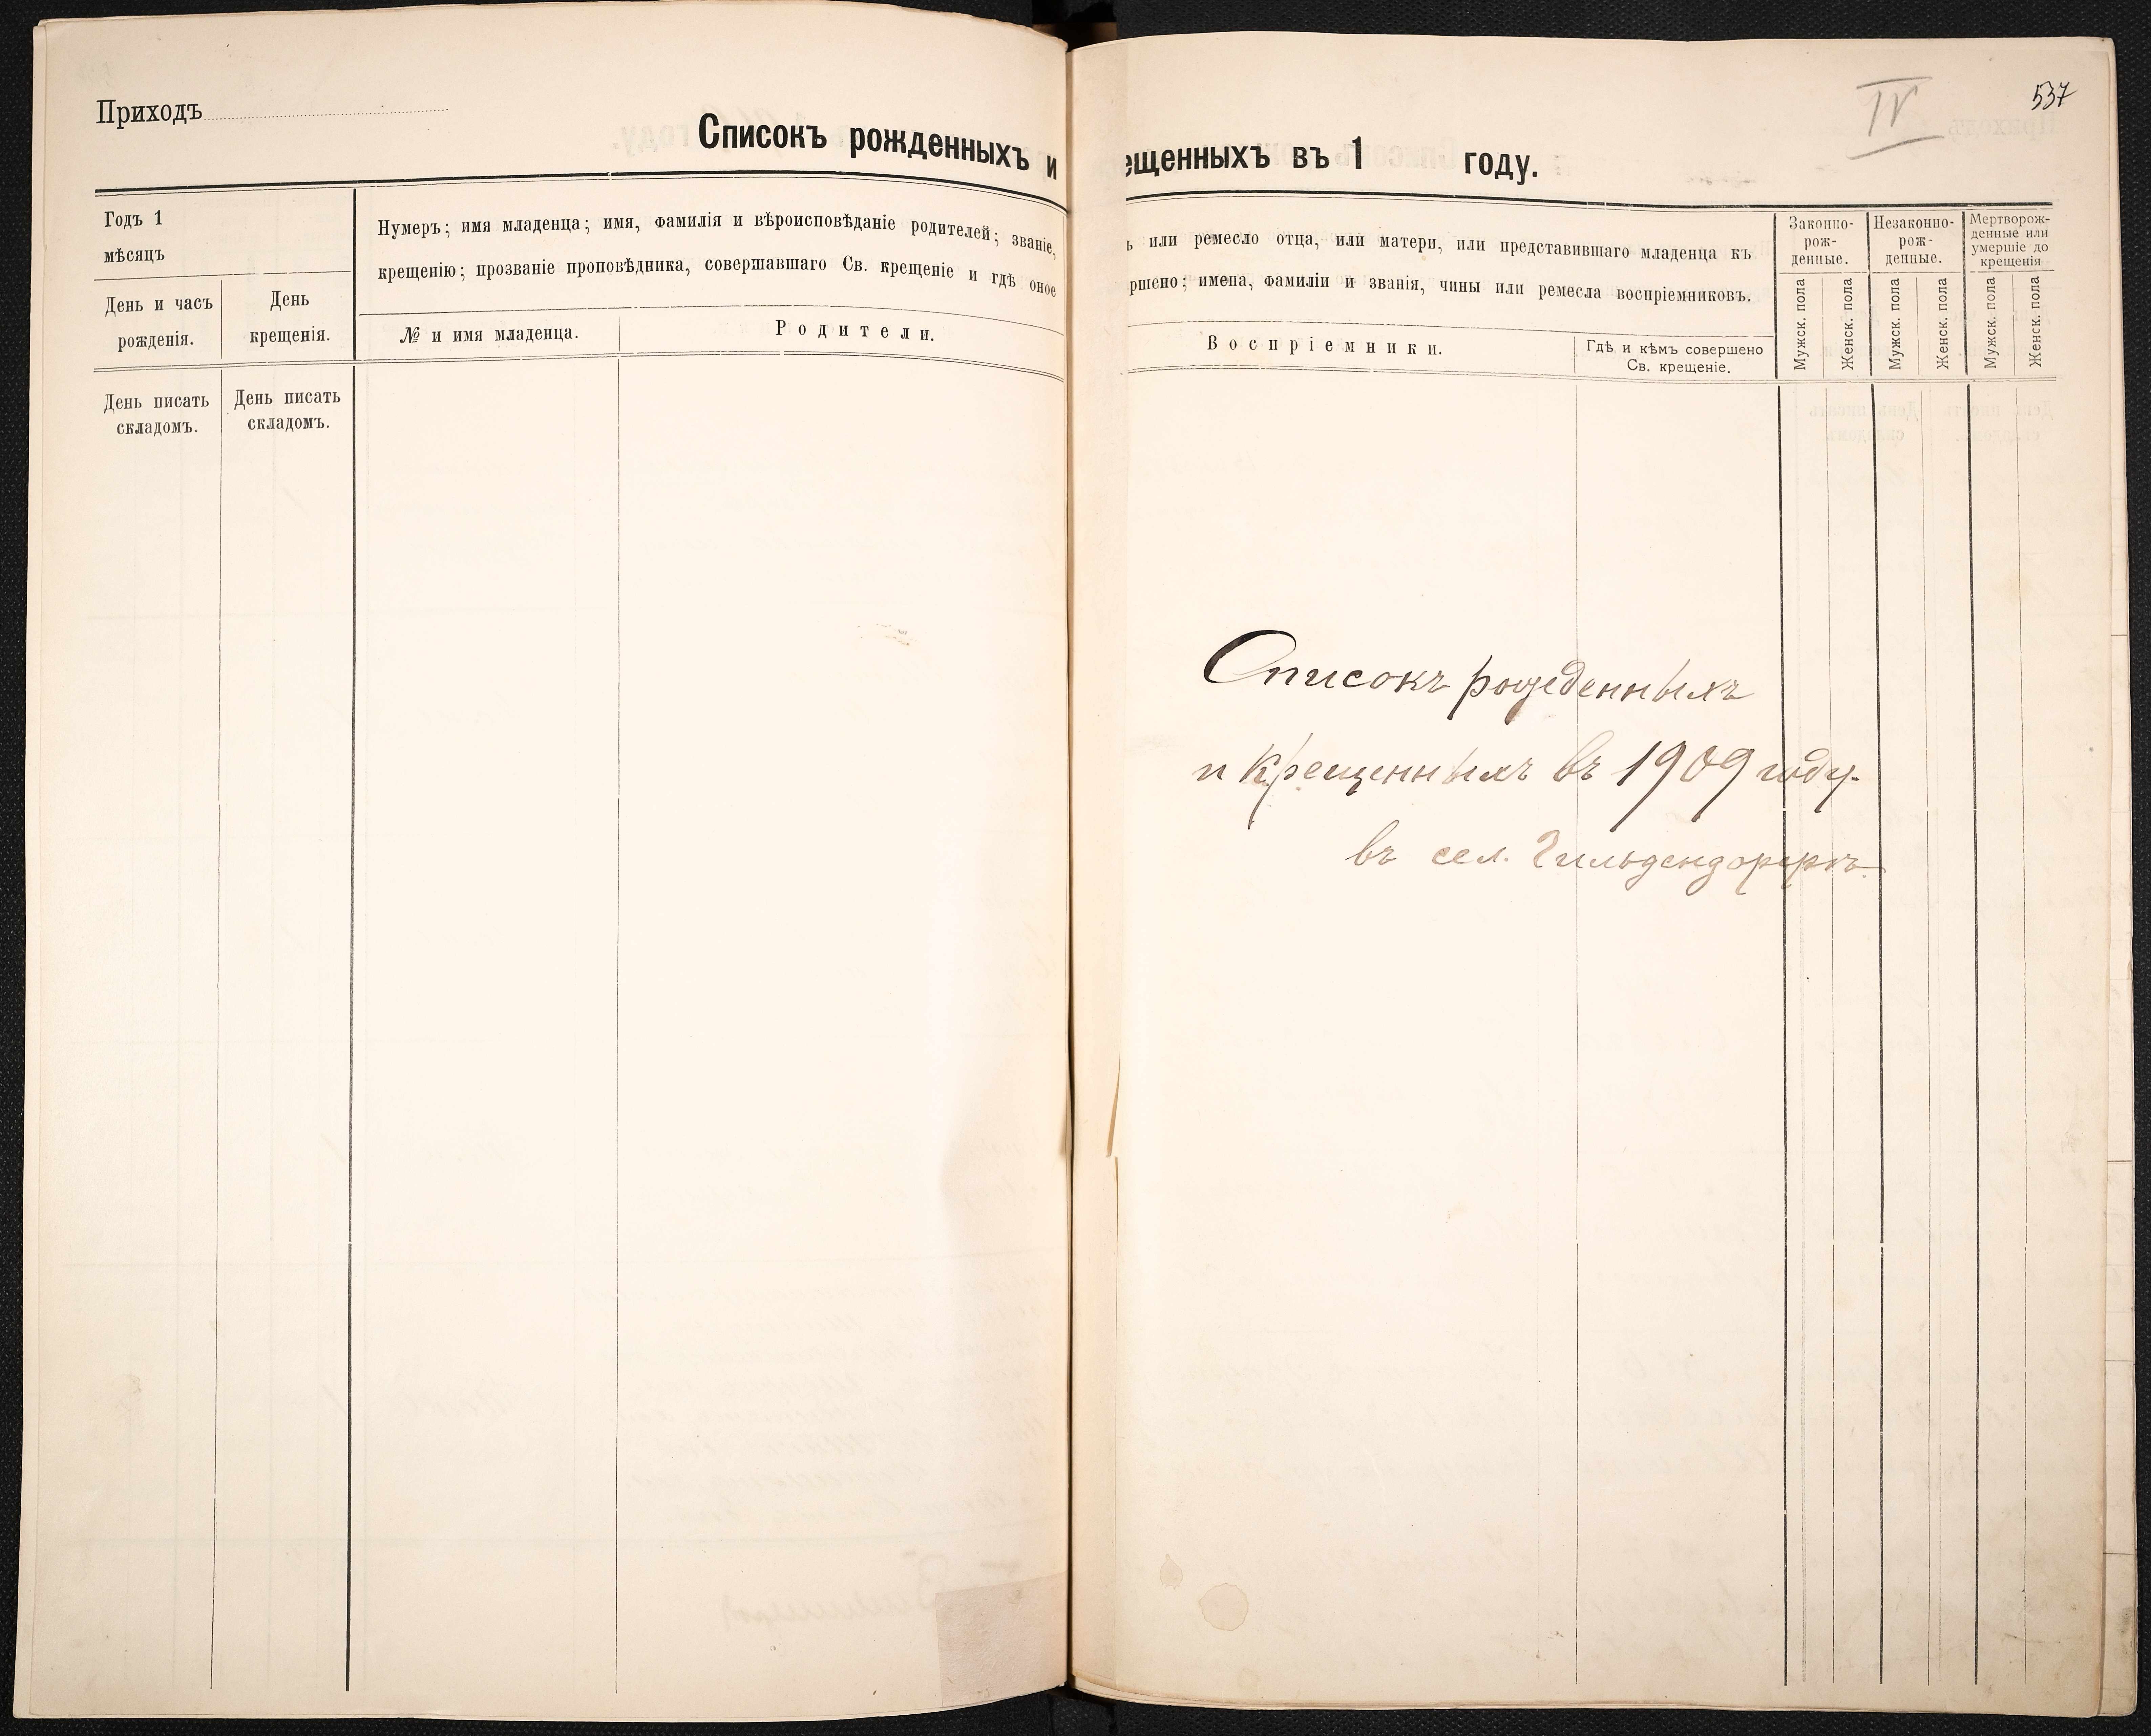 Приходъ
Списокъ рожденныхъ и
Годъ 1
мѣсяцъ
День и часъ
рожденія.
День
крещенія.
Нумеръ; имя младенца; имя, фамилія и вѣроисповѣданіе родителей; званіе,
крещенію; прозваніе проповѣдника, совершавшаго Св. крещеніе и гдѣ оное
№ и имя младенца.
Родители.
День писать
складомъ.
День писать
складомъ.
IV
537
ещенныхъ въ 1 году.
ь или ремесло отца, или матери, или представившаго младенца къ
ршено; имена, фамиліи и званія, чины или ремесла воспріемниковъ.
Воспріемники.
Гдѣ и кѣмъ совершено
Св. крещеніе.
Законно-
рож-
денные.
Незаконно-
рож-
денные.
Мертворож-
денные или
умершіе до
крещенія
Мужск. пола
Женск. пола
Мужск. пола
Женск. пола
Мужск. пола
Женск. пола
Списокъ рожденныхъ
и крещенныхъ въ 1909 году.
въ сел. Гильдендорфѣ.